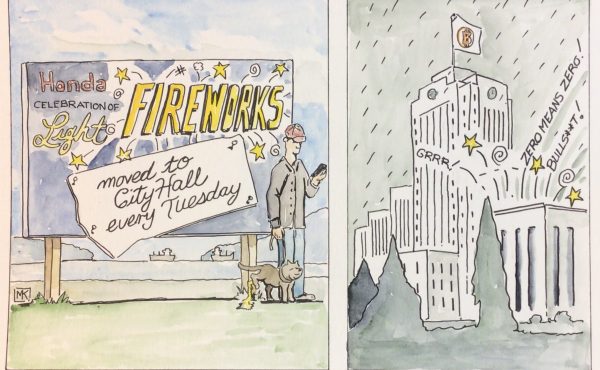 Honda
CELEBRATION OF
Light
FIREWORKS
moved to
City Hall
every Tuesday
MK
B
GRRR!
ZERO MEANS ZERO!
BULLS**T!